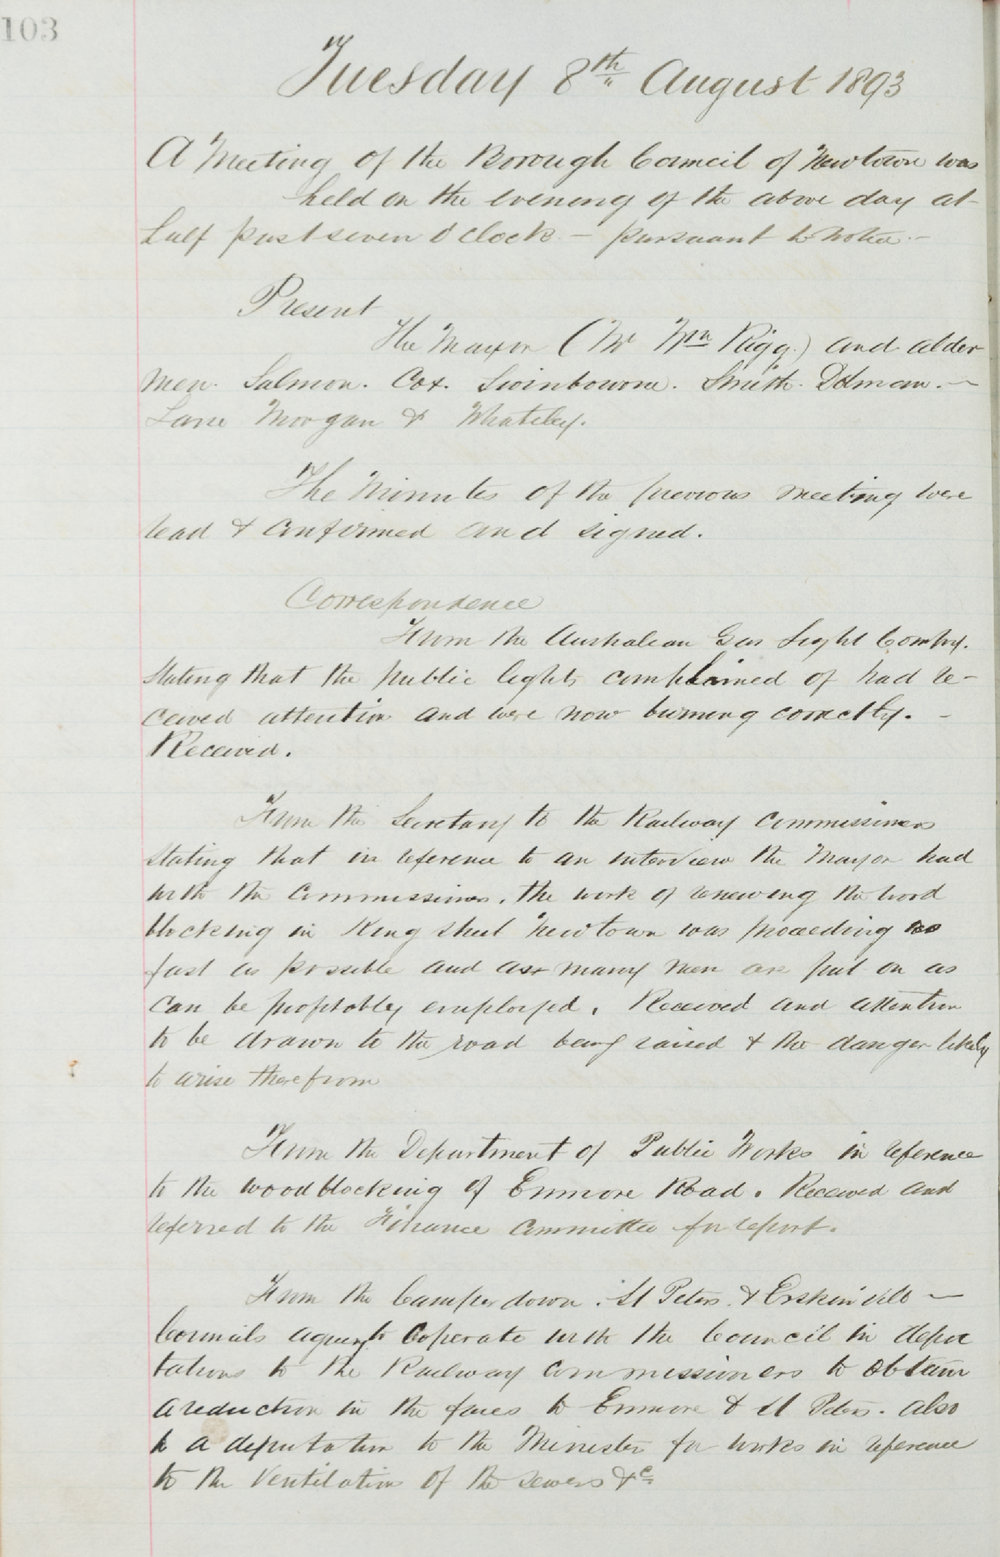 103
Tuesday 8th August 1893
A Meeting of the Borough Council of Newtown was
held on the evening of the above day at
half past seven O'Clock — pursuant to notice —
Present
The Mayor (Mr Wm Rigg.) and alder
men. Salmon. Cox. Swinbourne. Smith. Dolman. —
Lane Morgan & Whateley.
The Minutes of the previous meeting were
read & confirmed and signed.
Correspondence
From the Australian Gas Light Compy.
stating that the public lights complained of had re-
ceived attention and were now burning correctly. -
Received.
From the Secretary to the Railway Commissioners
stating that in reference to an interview the Mayor had
with the Commissioners, the work of renewing the wood
blocking in King Street Newtown was proceeding as
fast as possible and as many men are put on as
can be profitably employed. Received and attention
to be drawn to the road being raised & the danger likely
to arise therefrom
From the Department of Public Works in reference
to the woodblocking of Enmore Road. Received and
referred to the Finance Committee for report.
From the Camperdown. St Peters. & Erskinville —
Councils agreeing to Coperate with the Council in depu
tations to the Railway Commissioners to obtain
a reduction in the fares to Enmore & St Peters. also
to a deputation to the Minister for works in reference
to the Ventilation of the sewers &c